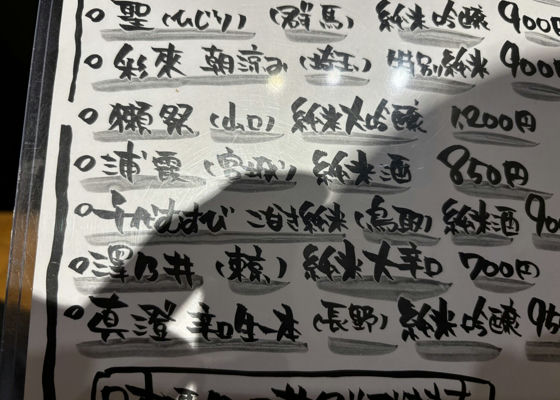 ○聖(ひじり)(群馬)純米吟醸 900
○彩來 朝涼み(埼玉)特別純米 900
○獺祭(山口)純米大吟醸 1200円
○浦霞(宮城)純米酒 850円
○千代むすび こなき純米(鳥取)純米酒 90
○澤乃井(東京)純米大辛口 700円
○真澄 辛口生一本(長野)純米吟醸 95